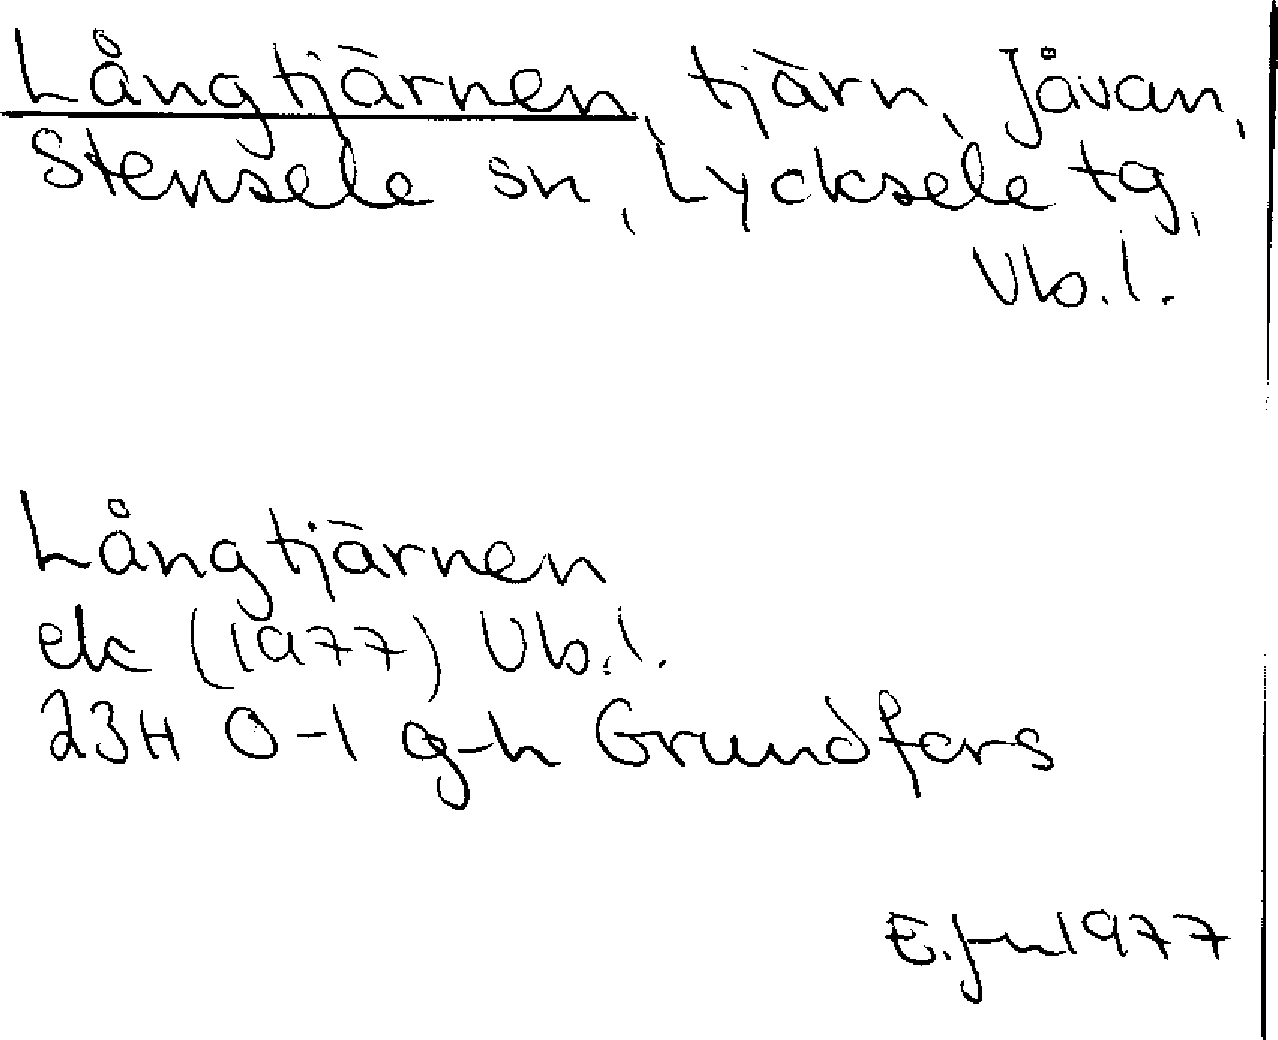 Långtjärnen, tjärn, Jåvan,
Stensele sn, Lycksele tg,
Vb.l.
Långtjärnen
ek (1977) Vb.l.
23H 0-1 g-h Grundfors
E. 1977